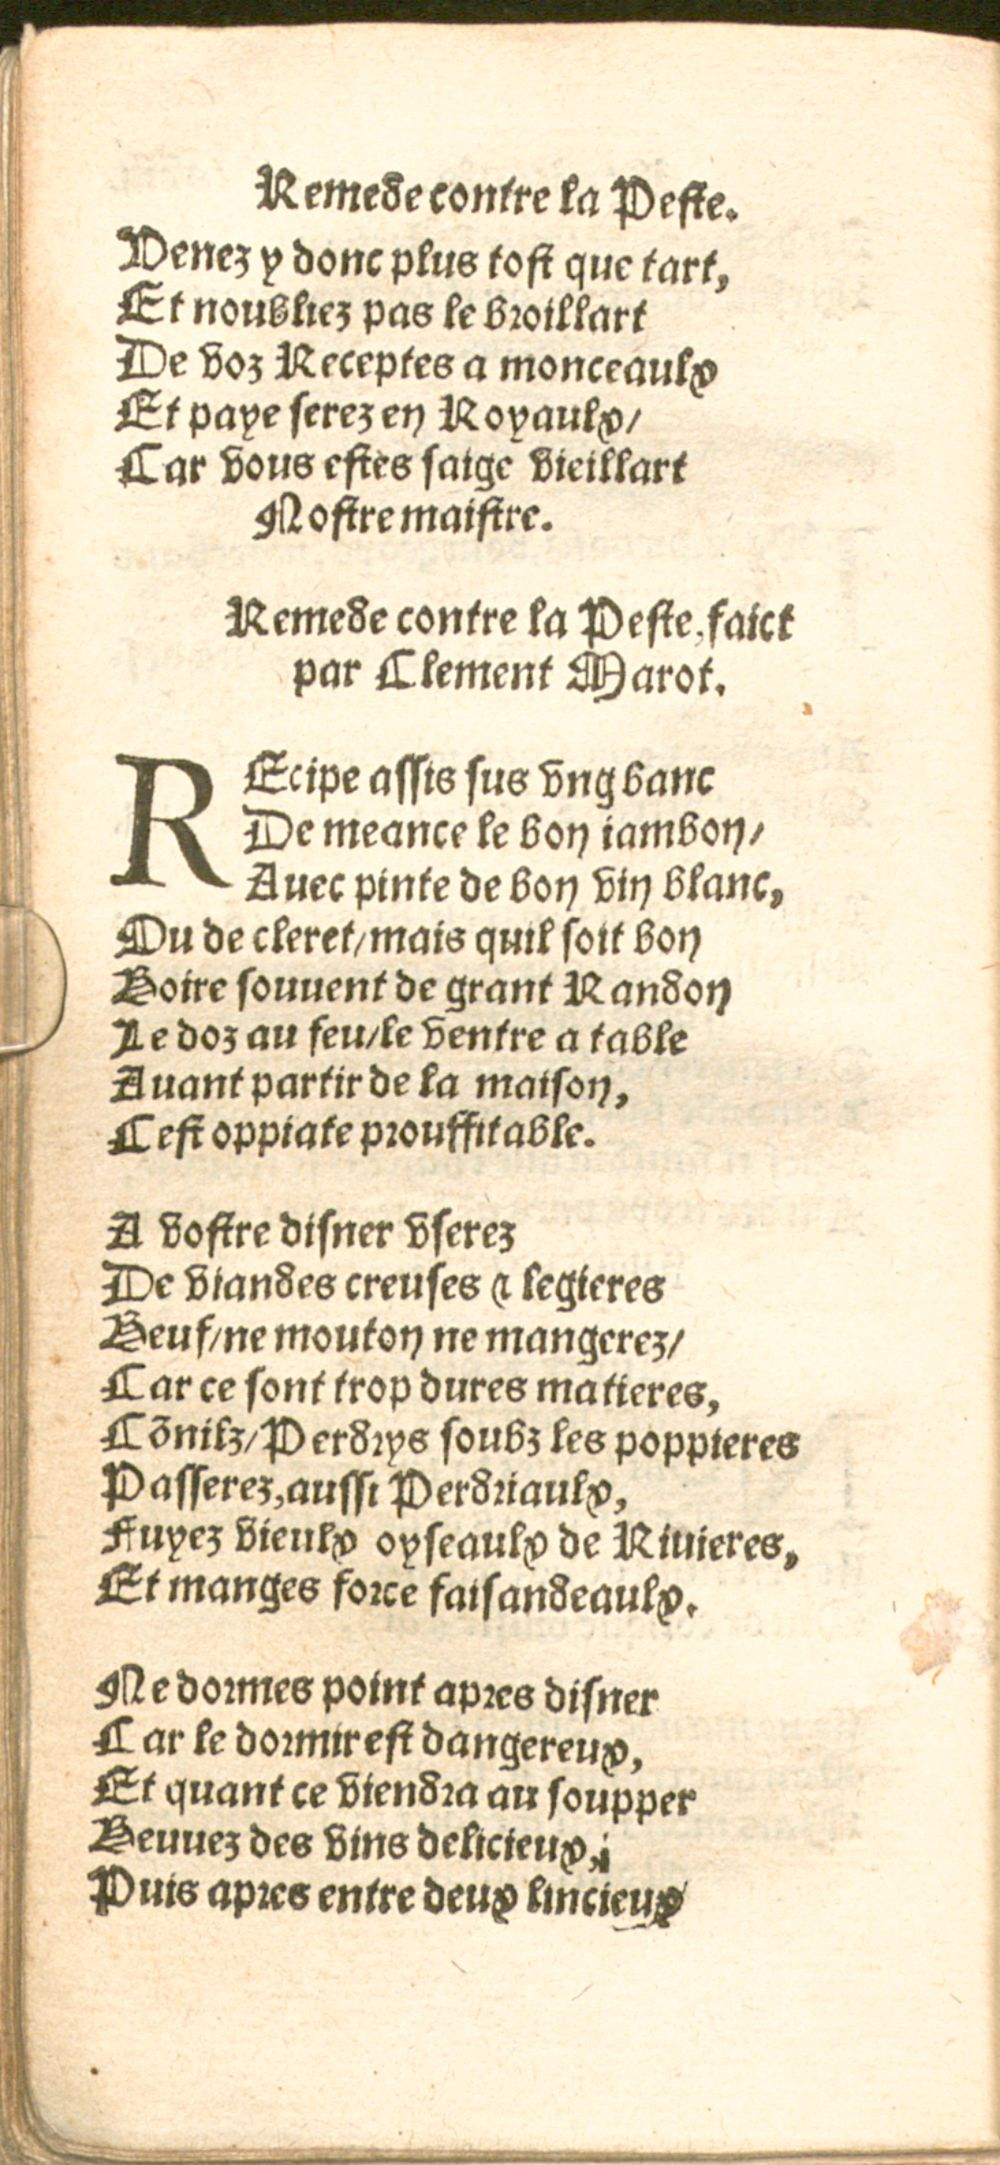 Remede contre la Peste.
Venez y donc plus tost que tart,
Et noubliez pas le broillart
De voz Receptes a monceaulx
Et paye serez en Royaulx/
Car vous estes saige vieillart
Nostre maistre.
Remede contre la Peste, faict
par Clement Marot.
REcipe assis sus vng banc
De meance le bon iambon/
Auec pinte de bon vin blanc,
Ou de cleret/mais quil soit bon
Boire souuent de grant Randon
Le doz au feu/le ventre a table
Auant partir de la maison,
Cest oppiate prouffitable.
A vostre disner vserez
De viandes creuses & legieres
Beuf/ne mouton ne mangerez/
Car ce sont trop dures matieres,
Cõnilz/Perdrys soubz les poppieres
Passerez, aussi Perdriaulx,
Fuyez vieulx oyseaulx de Riuieres,
Et manges force faisandeaulx.
Ne dormes point apres disner
Car le dormir est dangereux,
Et quant ce viendra au soupper
Beuuez des vins delicieux,
Puis apres entre deux lincieux